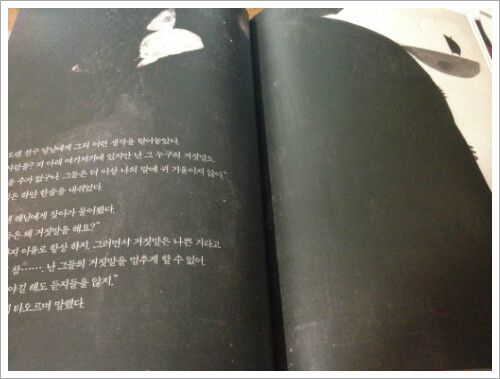 친구 달님에게 그의 이런 생각을 털어놓았다.
저 아래 여기저기에 있지만 난 그 누구의 거짓말도
수가 없구나. 그들은 더 이상 나의 말에 귀 기울이지 않아."
하얀 한숨을 내쉬었다.
해님에게 찾아가 물어봤다.
왜 거짓말을 해요?"
이유로 항상 하지. 그러면서 거짓말은 나쁜 거라고
참……. 난 그들의 거짓말을 멈추게 할 수 없어.
해도 듣지들을 않지."
타오르며 말했다.